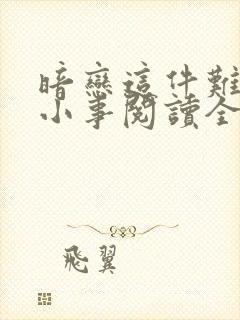 暗戀這件難
小事閱讀全
飛翼